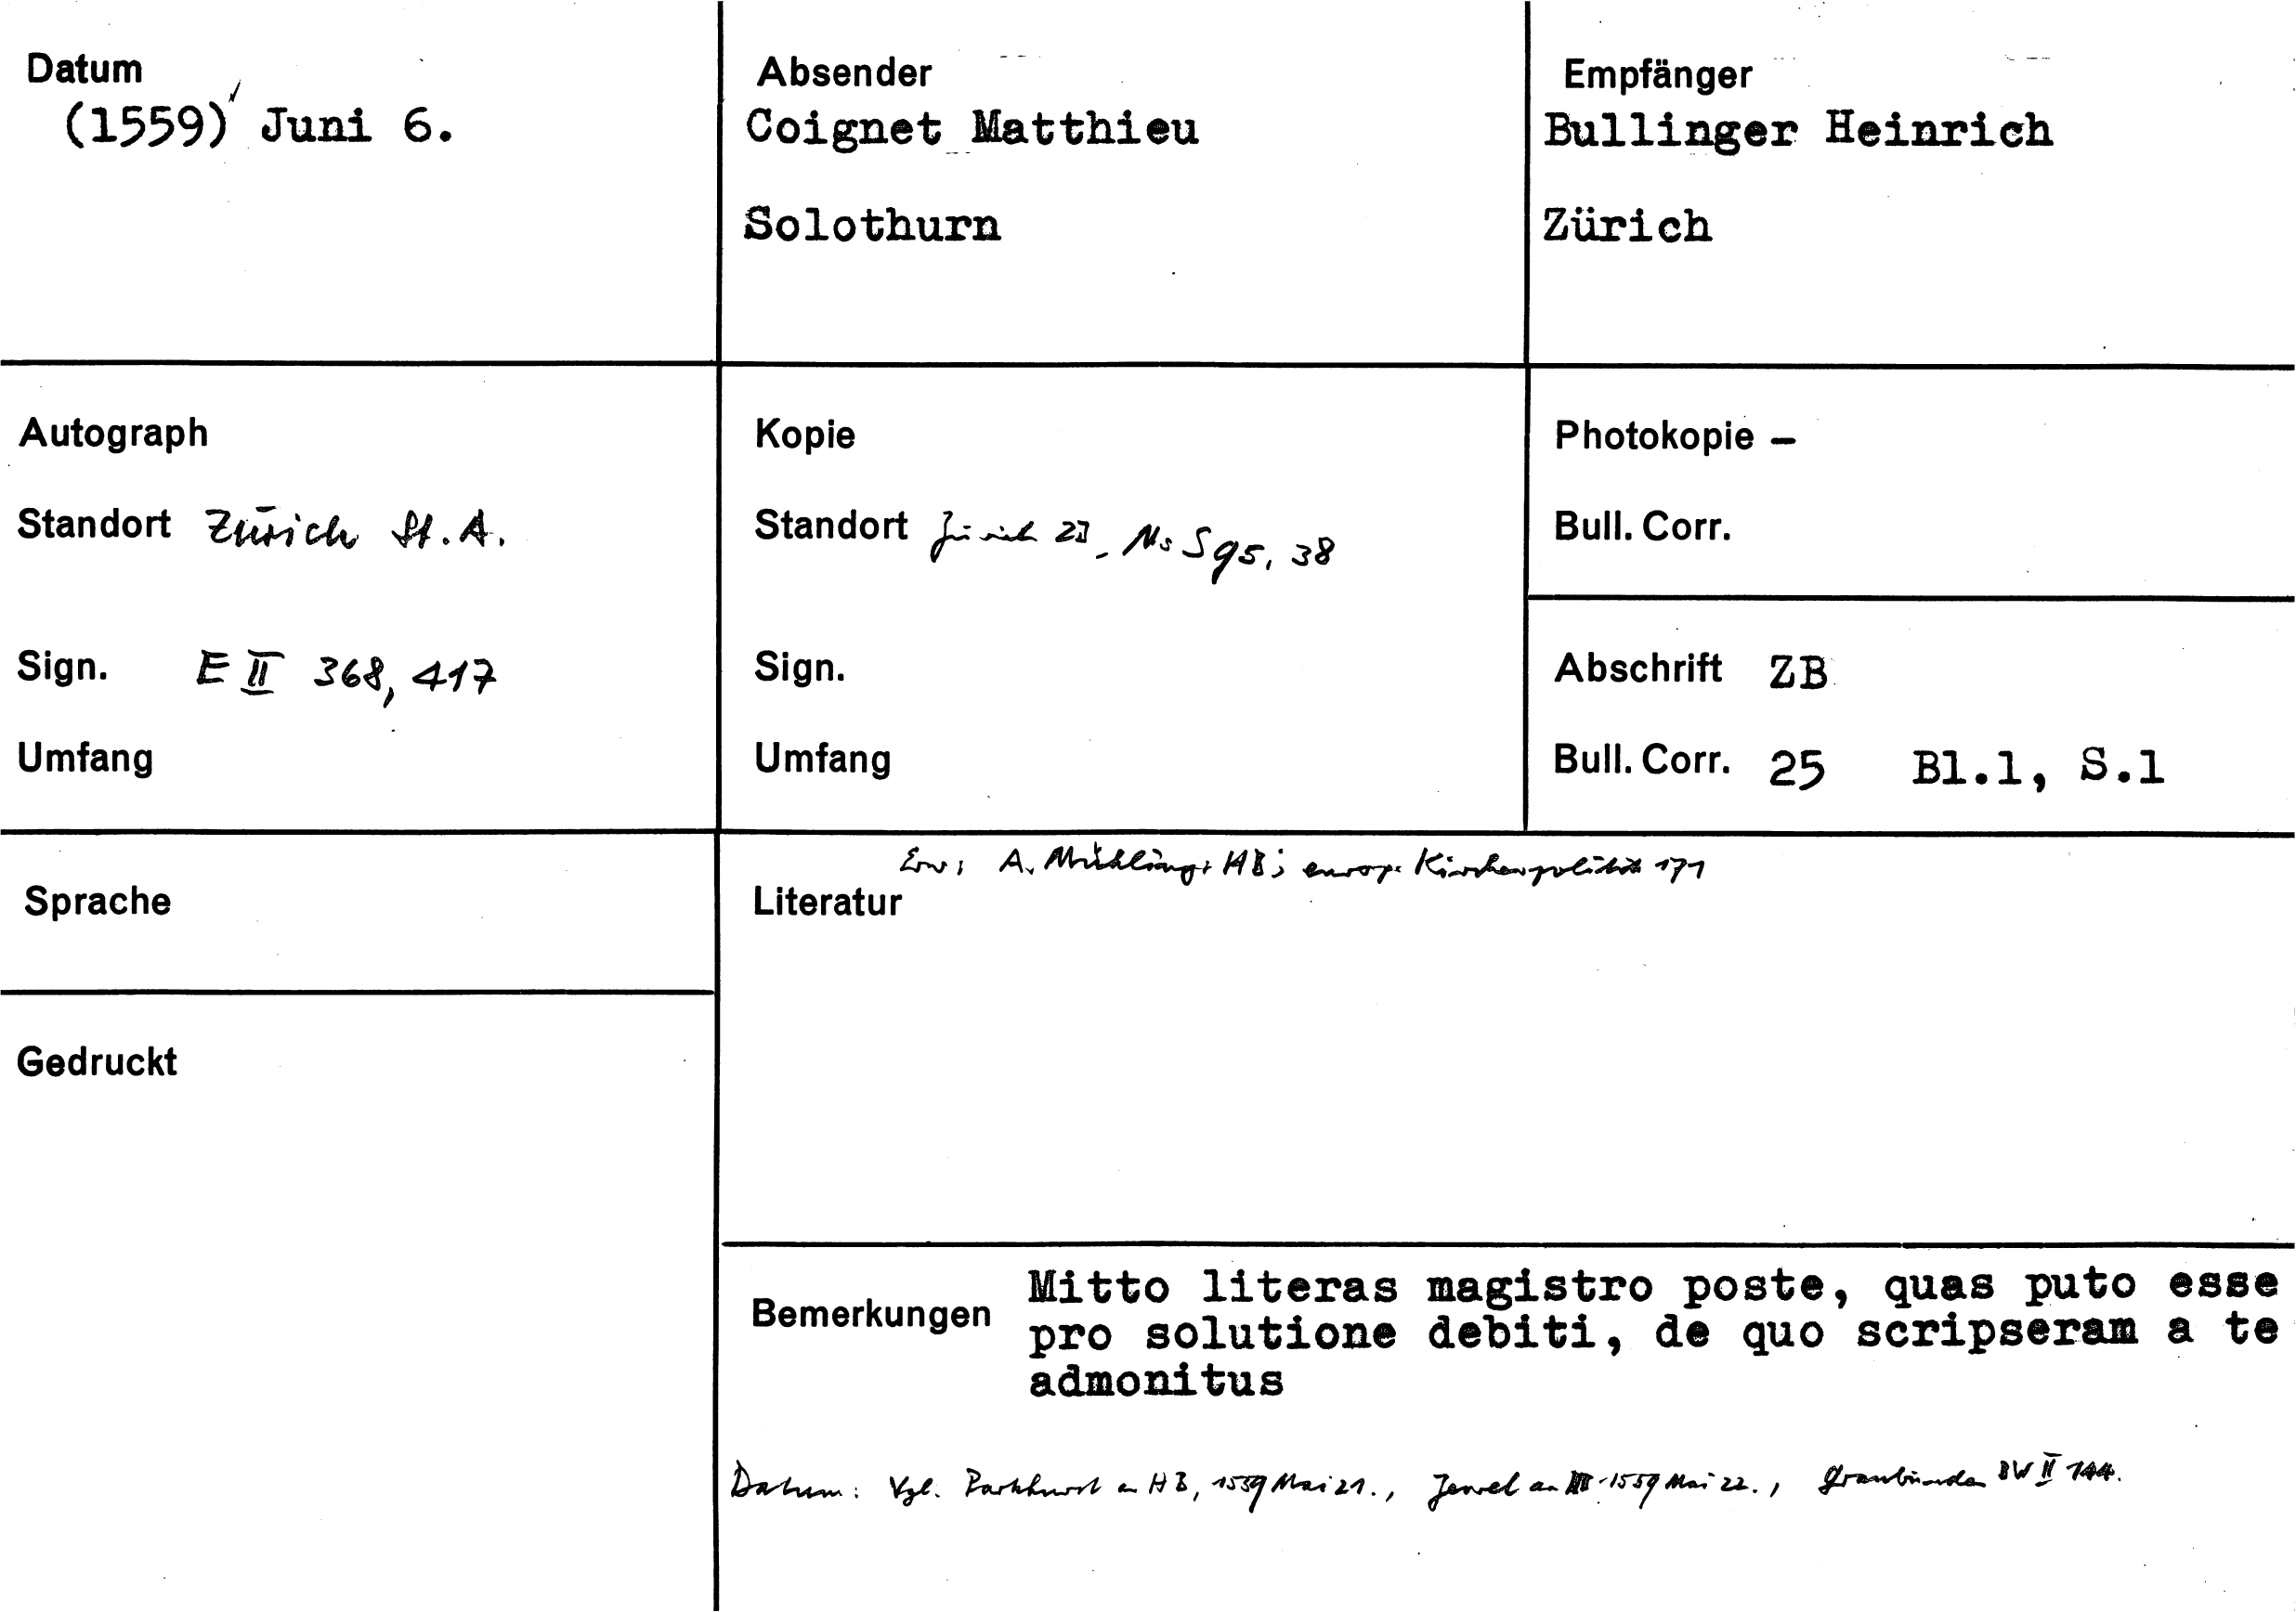 Datum
(1559) Juni 6.
Absender
Coignet Matthieu
Solothurn
Empfänger
Bullinger Heinrich
Zürich
Autograph
Standort Zürich St.A.
Sign. E II 368, 417
Umfang
Kopie
Standort Zürich ZB Ms S 95, 38
Sign.
Umfang
Photokopie –
Bull. Corr.
Abschrift ZB
Bull. Corr. 25 Bl.1, S.1
Sprache
Gedruckt
Erw: A. Mühling, HBs europ. Kirchenpolitik 171
Literatur
Bemerkungen
Mitto literas magistro poste, quas puto esse
pro solutione debiti, de quo scripseram a te
admonitus
Datum: Vgl. Parkhurst an HB, 1559 Mai 21., Jewel an 1559 Mai 22., Graubünden BW II 144.